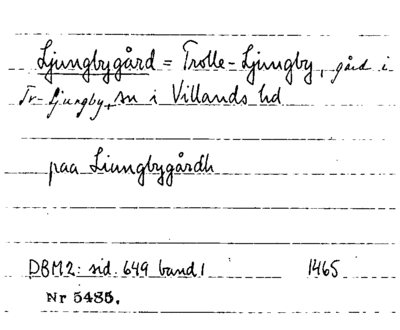 Ljungbygård = Trolle-Ljungby, gård i
Tr-Ljungby, sn i Villands hd
paa Liungbygårdh
DBM2: sid. 649 band 1 1465
Nr 5485.